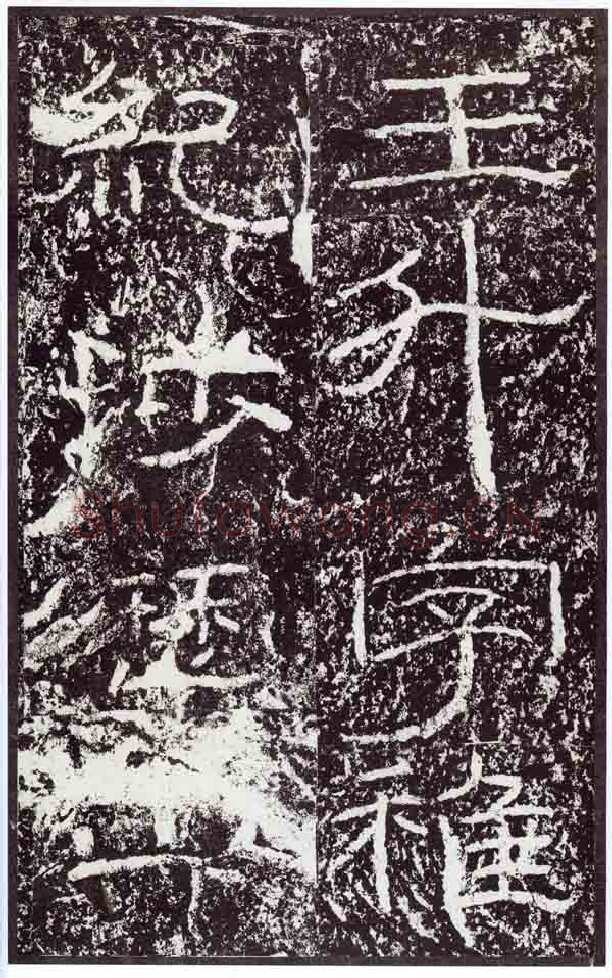 王升字稚
紀涉歷
Shufawang.CN